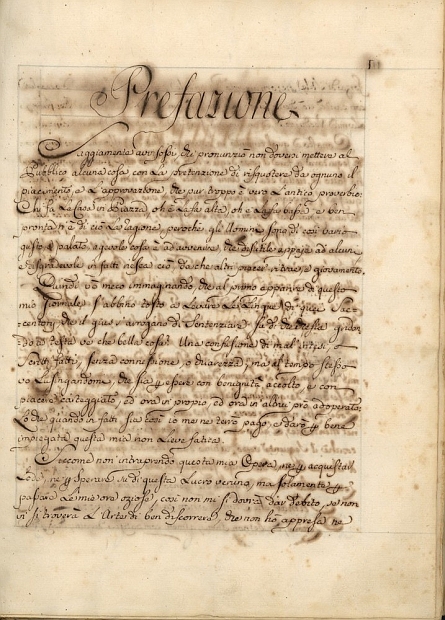 Prefazione
Saggiamente avvisossi, chi pronunziò non doversi mettere al
Pubblico alcuna cosa con la pretenzione di risquotere da ognuno il
piacimento, e l'aprovazione, che pur tropo è vero l'antico proverbio:
Chi fa la Casa in Piazza, o è la fa alta, o è la fa bassa; e ben
pronta n'è di ciò la ragione, perochè gli Uomini sono di così vario
gusto, e palato, agevole cosa è ad avvenire, che
in fatti riesca ciò, da che altri piacer ritrae, e giovamento.
Quindi io meco immaginando, che al primo apparire di questo
mio Giornale s'abbino tosto a Levare le Lingue di que'
i quali s'arrogano di Sentenziare su di che
do a Testa ve' che bella cosa! Una confusione di mal'
fatti, senza connessione, o ma al tempo stesso
Lusingandomi, che sia per essere con benignità accolto, e con
piacere ed ora in propio, ed ora in altrui prò adoperato,
Lo che quando in fatti sia così io me ne terrò pago, e darò per bene
impiegata questa mia non Lieve fatica.
Siccome non intraprendo questa mia Opera nè per acquistar
Lode, nè per sperare su di questa Lucro veruno, ma solamente per
passare Le mie ore oziose, così non mi si dovrà dar debito, se non
vi si troverà L'Arte di ben discorrere, che non hò appresa nè